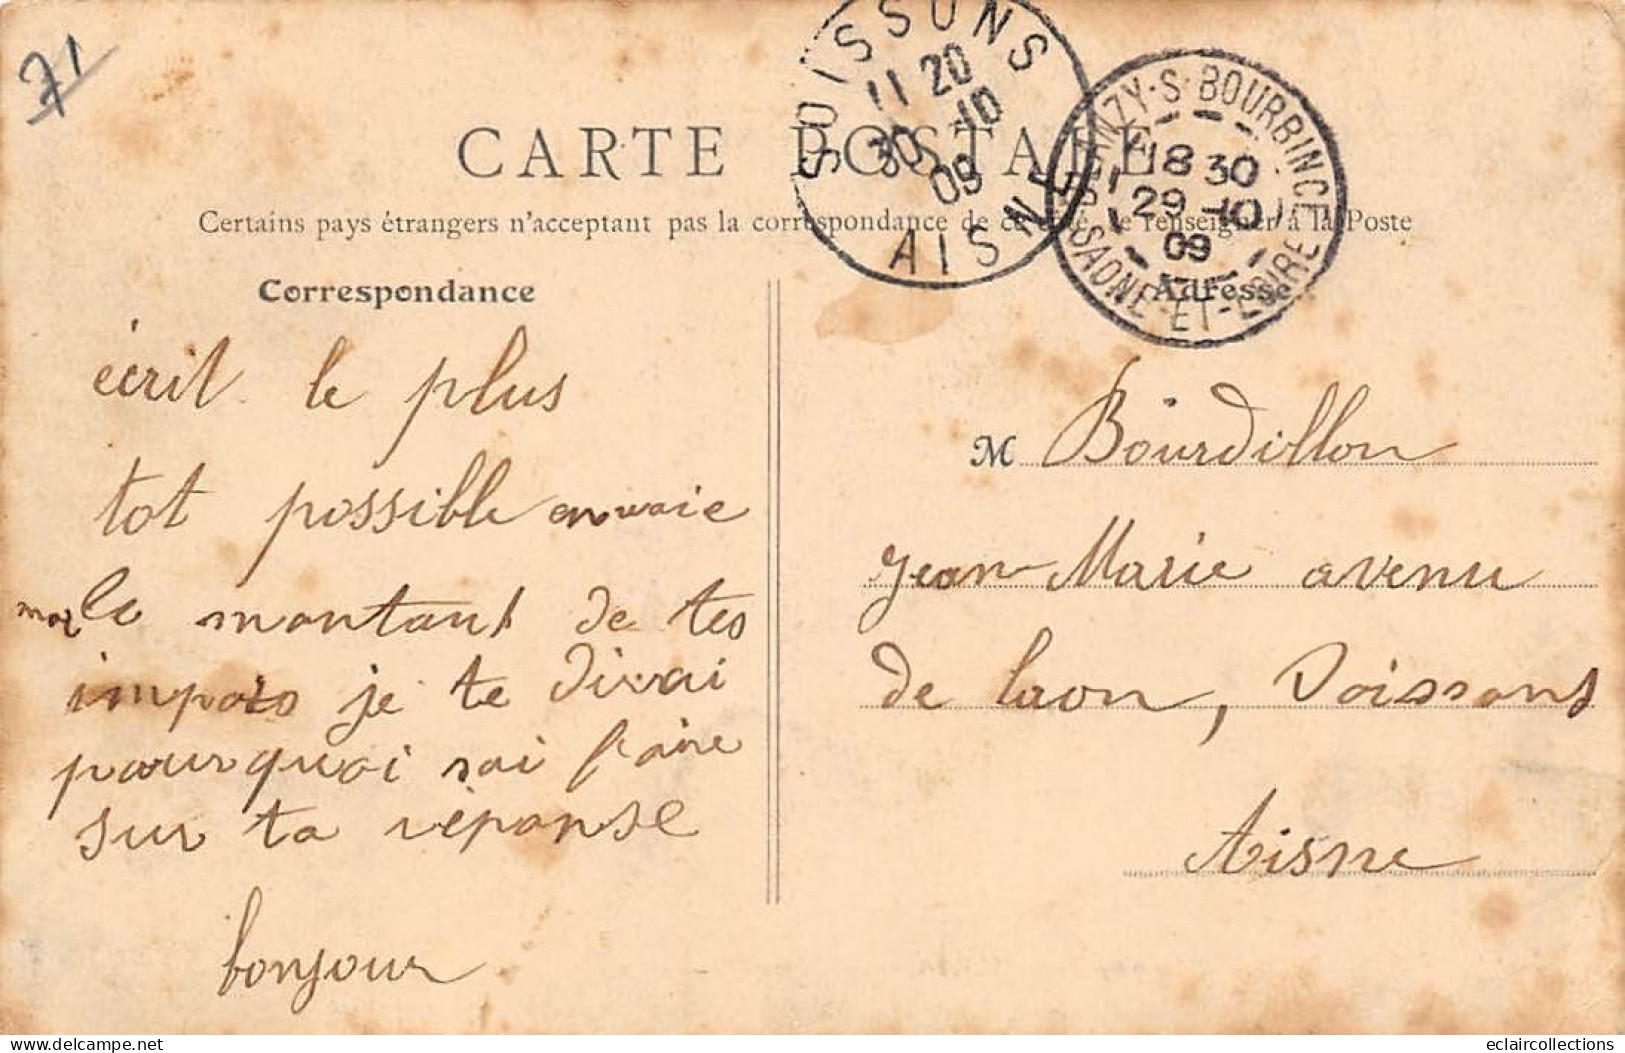 71
SOISSONS
11 20
30 -10
09
AISNE
BLANZY-S-BOURBINCE
18 30
29 -10
09
SAONE-ET-LOIRE
CARTE POSTALE
Certains pays étrangers n'acceptant pas la correspondance de ce côté, se renseigner à la Poste
Correspondance
écrit le plus
tot possible envoie
moi le montant de tes
impots je te dirai
pourquoi sai faire
sur ta réponse
bonjour
Adresse
M Bourdillon
Jean-Marie avenu
de laon, Soissons
Aisne
eclaircollections